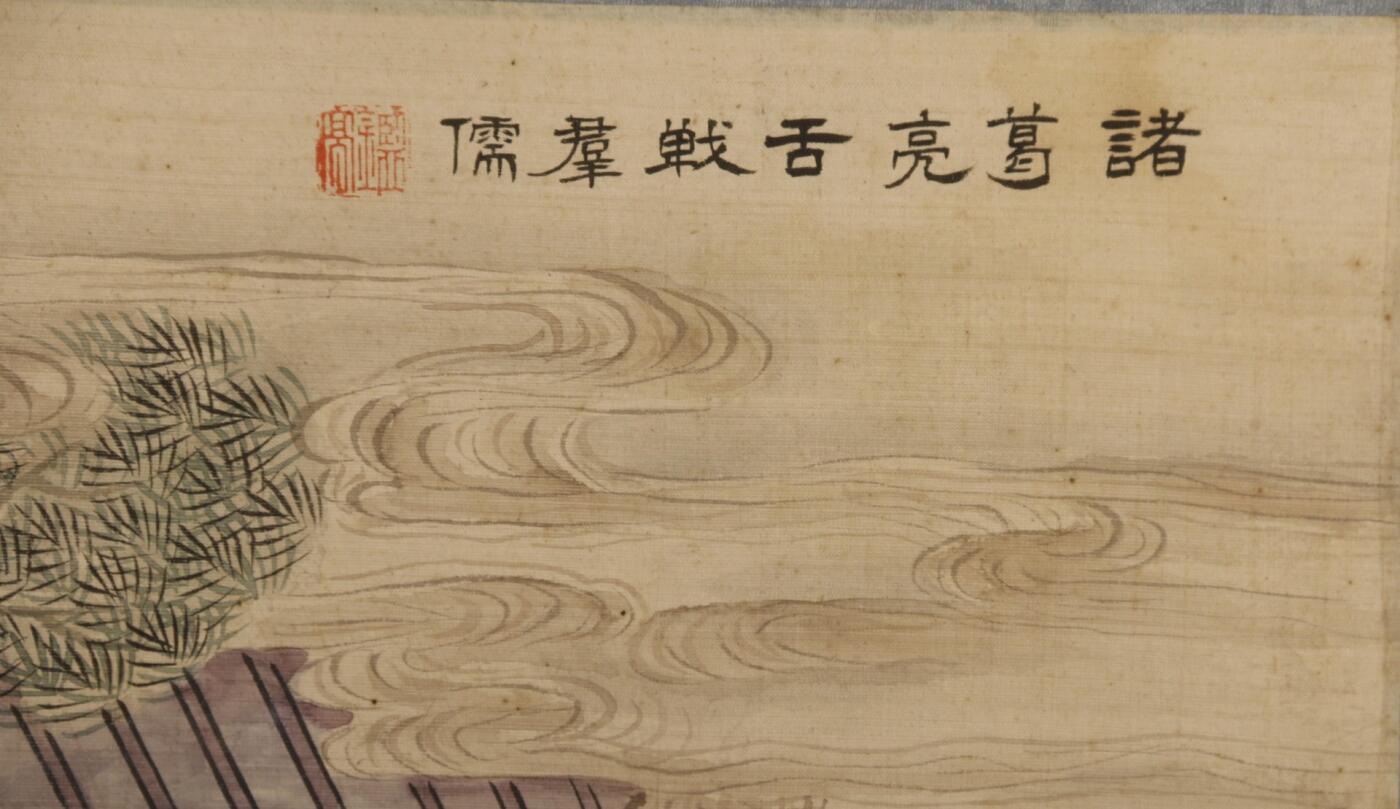 諸葛亮舌戰羣儒